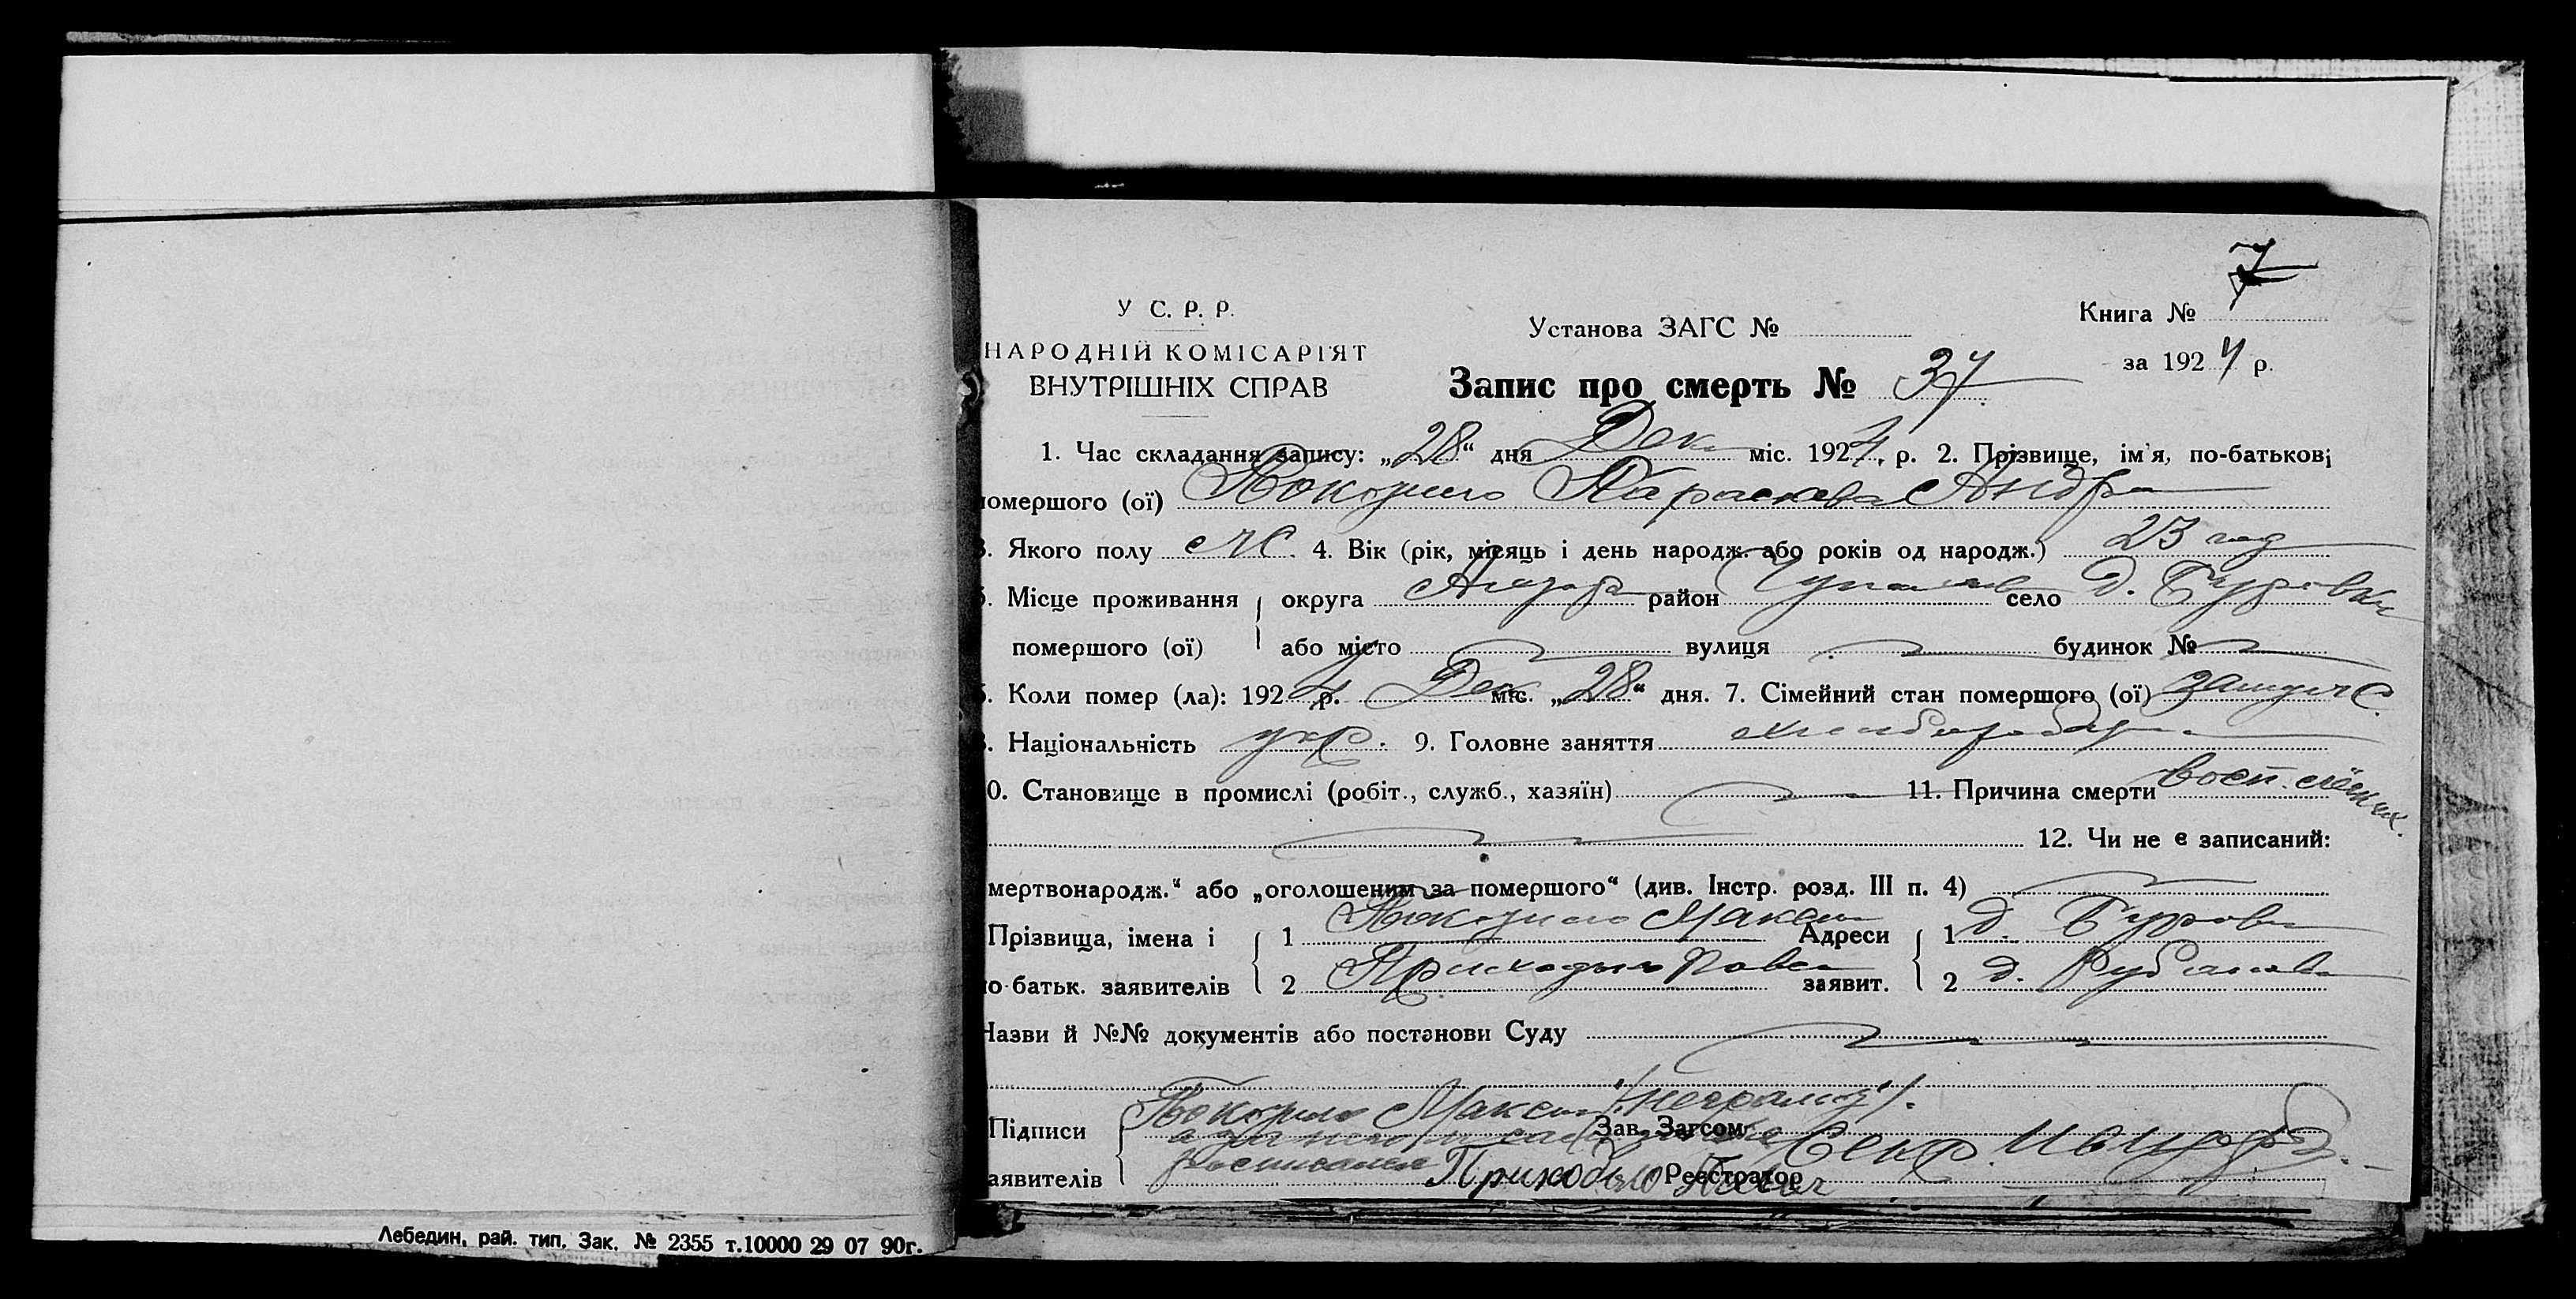 У С. Р. Р.
НАРОДНІЙ КОМІСАРІЯТ
ВНУТРІШНІХ СПРАВ
Установа ЗАГС №
Книга № 7
за 1924 р.
Запис про смерть № 37
1. Час складання запису: „28“ дня Дек. міс. 1924 р. 2. Прізвище, ім'я, по-батькові
помершого (ої) Параскева Андр
3. Якого полу ж. 4. Вік (рік, місяць і день народж. або років од народж.) 23 год
5. Місце проживання округа район село д. Буровки
помершого (ої) або місто вулиця будинок №
6. Коли помер (ла): 1924 р. Дек міс. „28“ дня. 7. Сімейний стан помершого (ої) замуж
8. Національність укр. 9. Головне заняття хлебороб
10. Становище в промислі (робіт., служб., хазяїн) 11. Причина смерти восп. лёгких.
12. Чи не є записаний:
мертвонародж.“ або „оголошеним за помершого“ (див. Інстр. розд. III п. 4)
Прізвища, імена і 1 Максим Адреси 1 д. Буров
по-батьк. заявителів 2 Приходько Павел заявит. 2 д.
Назви й №№ документів або постанови Суду
Підписи Максим /неграмот/. Зав. Загсом Секр.
расписался
заявителів Приходько Павел Реєстратор
Лебедин, рай. тип. Зак. № 2355 т.10000 29 07 90г.